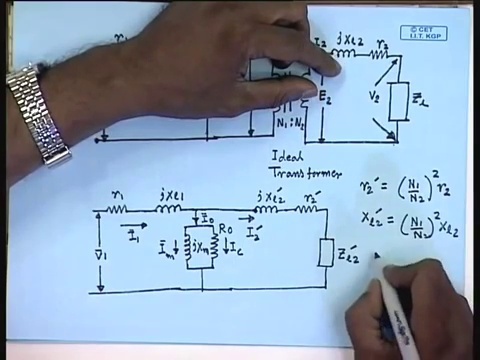 © CET
I.I.T. KGP
r₁
I₂ jXℓ₂ r₂
E₂ V₂ Z̄ℓ
N₁ : N₂
Ideal
Transformer
r₁ jXℓ₁ jXℓ₂′ r₂′
Ī₁ Ī₀ I₂′
V̄₁ Īₘ jXₘ R₀ I_c Z̄ℓ₂′
r₂′ = (N₁/N₂)² r₂
Xℓ₂′ = (N₁/N₂)² Xℓ₂